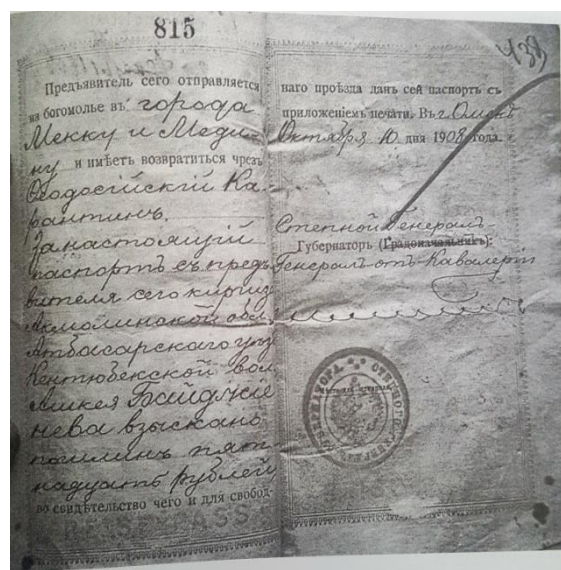 815
Предъявитель сего отправляется
на богомолье въ города
Мекку и Меди-
ну и имѣетъ возвратиться чрезъ
Ѳеодосійскій Ка-
рантинъ.
За настоящій
паспортъ съ предъ
вителя сего киргиз
Акмолинской обл.
Атбасарскаго уѣз
Кентюбекской вол
Алкея Байдусе
нева взыскано
пошлинъ пят-
надцать рублей
во свидѣтельство чего и для свобод-
наго проѣзда данъ сей паспортъ съ
приложеніемъ печати. Въ г. Омскѣ
Октября 10 дня 1908 года.
Степной Генералъ-
Губернаторъ (Градоначальникъ):
Генералъ-отъ-Кавалеріи